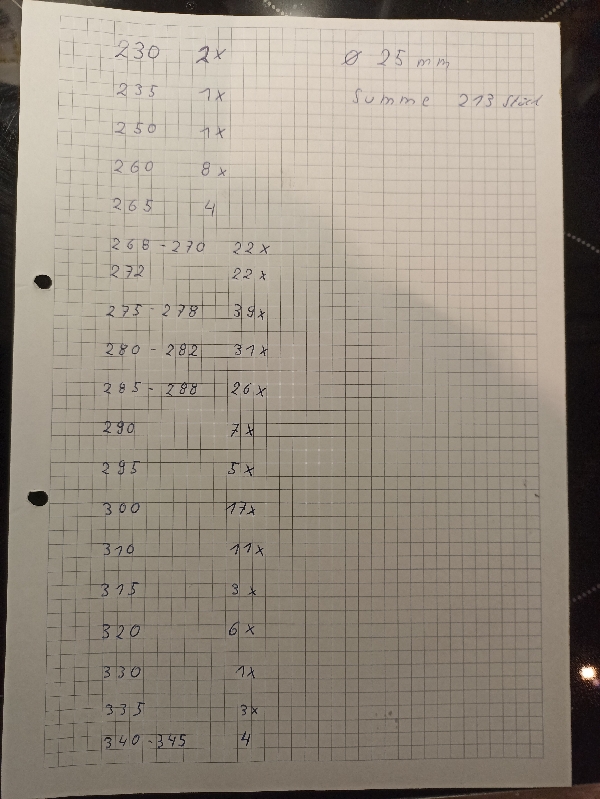 230 2x
235 1x
250 1x
260 8x
265 4
268-270 22x
272 22x
275-278 39x
280-282 31x
285-288 26x
290 7x
295 5x
300 17x
310 11x
315 3x
320 6x
330 1x
335 3x
340-345 4
Ø 25 mm
Summe 213 Stück